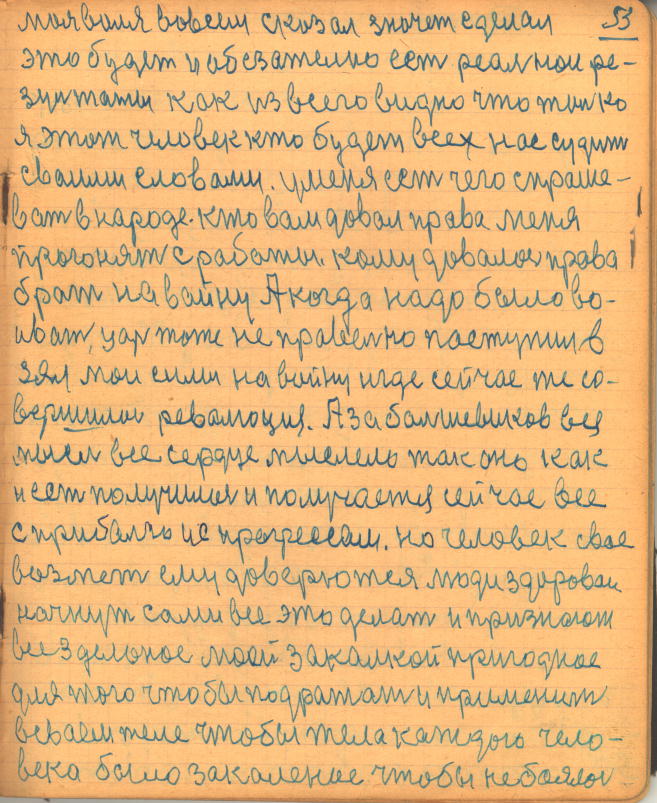 53
моя воля вовсем сказал значет сделал
это будет и обезателно ест реалнои ре-
зултаты как из всего видно что толко
я этот человек кто будет всех нас судит
сваими словами. уменя ест чего спраше-
ват в народе. кто вам довал права меня
прогонят с работы. кому довалос права
брат на вайну А когда надо было во-
иват, цар тоже не правелно паступил в
зял мои сили на войну и где сейчас же со-
вершилос револющия. А за балшевиков вся
мысл все сердце мыслело так оно как
и ест получилос и получается сейчас все
с прибалю и с прогрессам. но человек свое
возмет ему доверются люди здороваи
начнут сами все это делат и признают
все зделоное моей закалкой пригодное
для того чтобы подражат и применит
всваем теле чтобы тела каждого чело-
века было закаленае чтобы небоялос